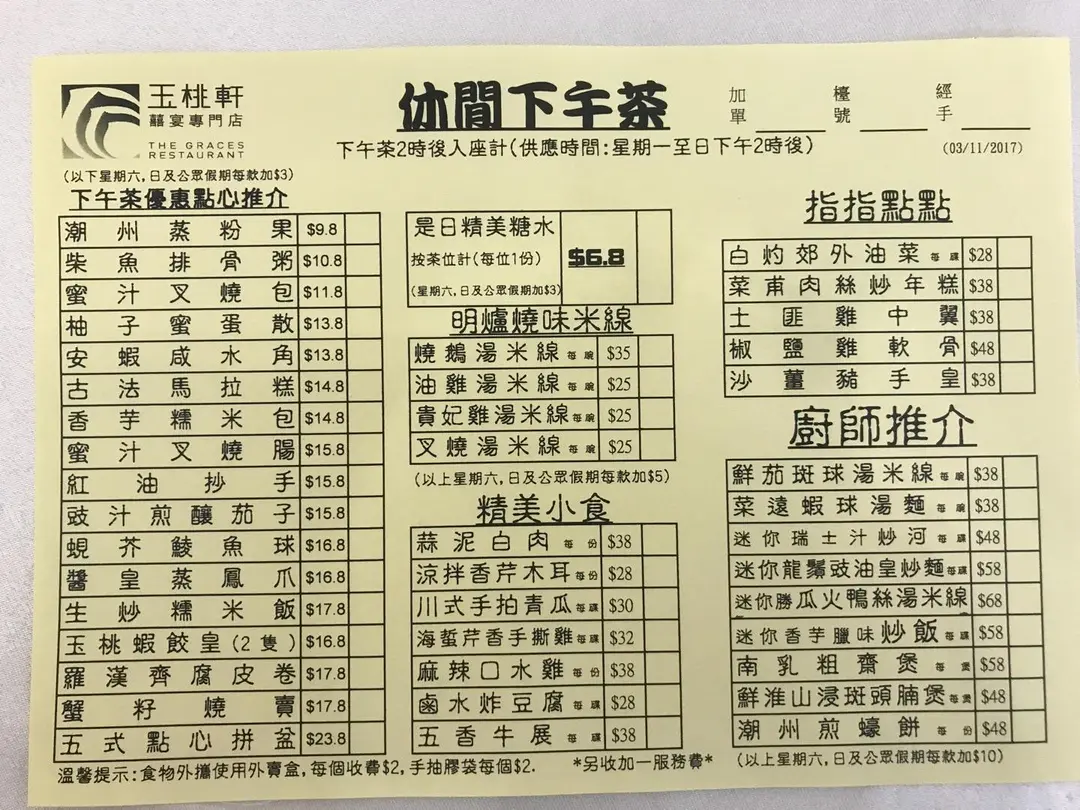 玉桃軒
囍宴專門店
THE GRACES
RESTAURANT
休閒下午茶
加單
檯號
經手
下午茶2時後入座計(供應時間:星期一至日下午2時後)
(03/11/2017)
(以下星期六,日及公眾假期每款加$3)
下午茶優惠點心推介
潮州蒸粉果 $9.8
柴魚排骨粥 $10.8
蜜汁叉燒包 $11.8
柚子蜜蛋散 $13.8
安蝦咸水角 $13.8
古法馬拉糕 $14.8
香芋糯米包 $14.8
蜜汁叉燒腸 $15.8
紅油抄手 $15.8
豉汁煎釀茄子 $15.8
蜆芥鯪魚球 $16.8
醬皇蒸鳳爪 $16.8
生炒糯米飯 $17.8
玉桃蝦餃皇(2隻) $16.8
羅漢齊腐皮卷 $17.8
蟹籽燒賣 $17.8
五式點心拼盆 $23.8
是日精美糖水
按茶位計(每位1份) $6.8
(星期六,日及公眾假期加$3)
明爐燒味米線
燒鵝湯米線每碗 $35
油雞湯米線每碗 $25
貴妃雞湯米線每碗 $25
叉燒湯米線每碗 $25
(以上星期六,日及公眾假期每款加$5)
精美小食
蒜泥白肉每份 $38
涼拌香芹木耳每份 $28
川式手拍青瓜每碟 $30
海蜇芹香手撕雞每碟 $32
麻辣口水雞每份 $38
鹵水炸豆腐每碟 $28
五香牛展每碟 $38
指指點點
白灼郊外油菜每碟 $28
菜甫肉絲炒年糕 $38
土匪雞中翼 $38
椒鹽雞軟骨 $48
沙薑豬手皇 $38
廚師推介
鮮茄斑球湯米線每碗 $38
菜遠蝦球湯麵每碗 $38
迷你瑞士汁炒河每碟 $48
迷你龍鬚豉油皇炒麵每碟 $58
迷你勝瓜火鴨絲湯米線 $68
迷你香芋臘味炒飯每碟 $58
南乳粗齋煲每煲 $58
鮮淮山浸斑頭腩煲每煲 $48
潮州煎蠔餅每份 $48
(以上星期六,日及公眾假期每款加$10)
溫馨提示:食物外攜使用外賣盒,每個收費$2,手抽膠袋每個$2.
*另收加一服務費*